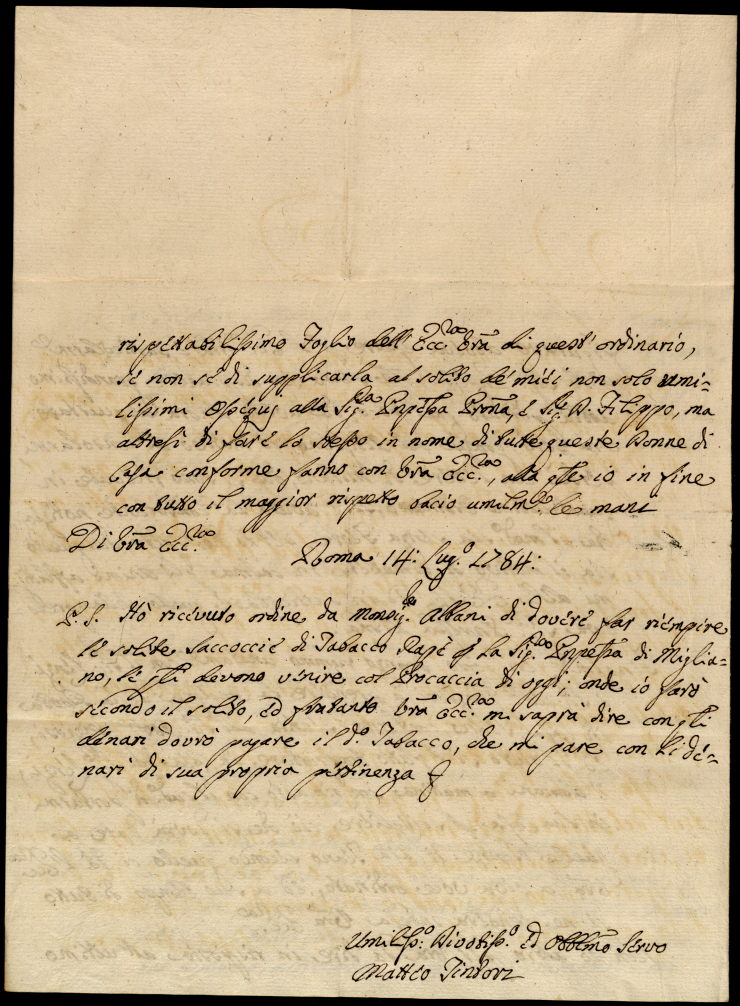 rispettabilissimo Foglio dell' Ecc.za Vra di quest' ordinario,
se non se di supplicarla al solito de miei non solo umi-
lissimi Ossequj alla Sig.ra Pnpessa Prôna, e Sig. D. Filippo, ma
altresì di fare lo stesso in nome di tutte queste Donne di
Casa conforme fanno con Vra Ecc.za, alla qle io in fine
con tutto il maggior rispetto bacio umilm.te le mani
Di Vra Ecc.za
Roma 14: Lug.o 1784:
P.S. Hò ricevuto ordine da Monsig.r Albani di dovere far riempire
le solite saccoccie di Tabacco Rapè p la Sig.ra Pnpessa di Miglia-
no, le qli devono venire col Procaccia di oggi; onde io farò
secondo il solito, ed frattanto Vra Ecc.za mi saprà dire con qli
denari dovrò pagare il d.o Tabacco, che mi pare con li de-
nari di sua propria pertinenza
Umiliss.o Divotiss.o ed Obblmo Servo
Matteo Tintori